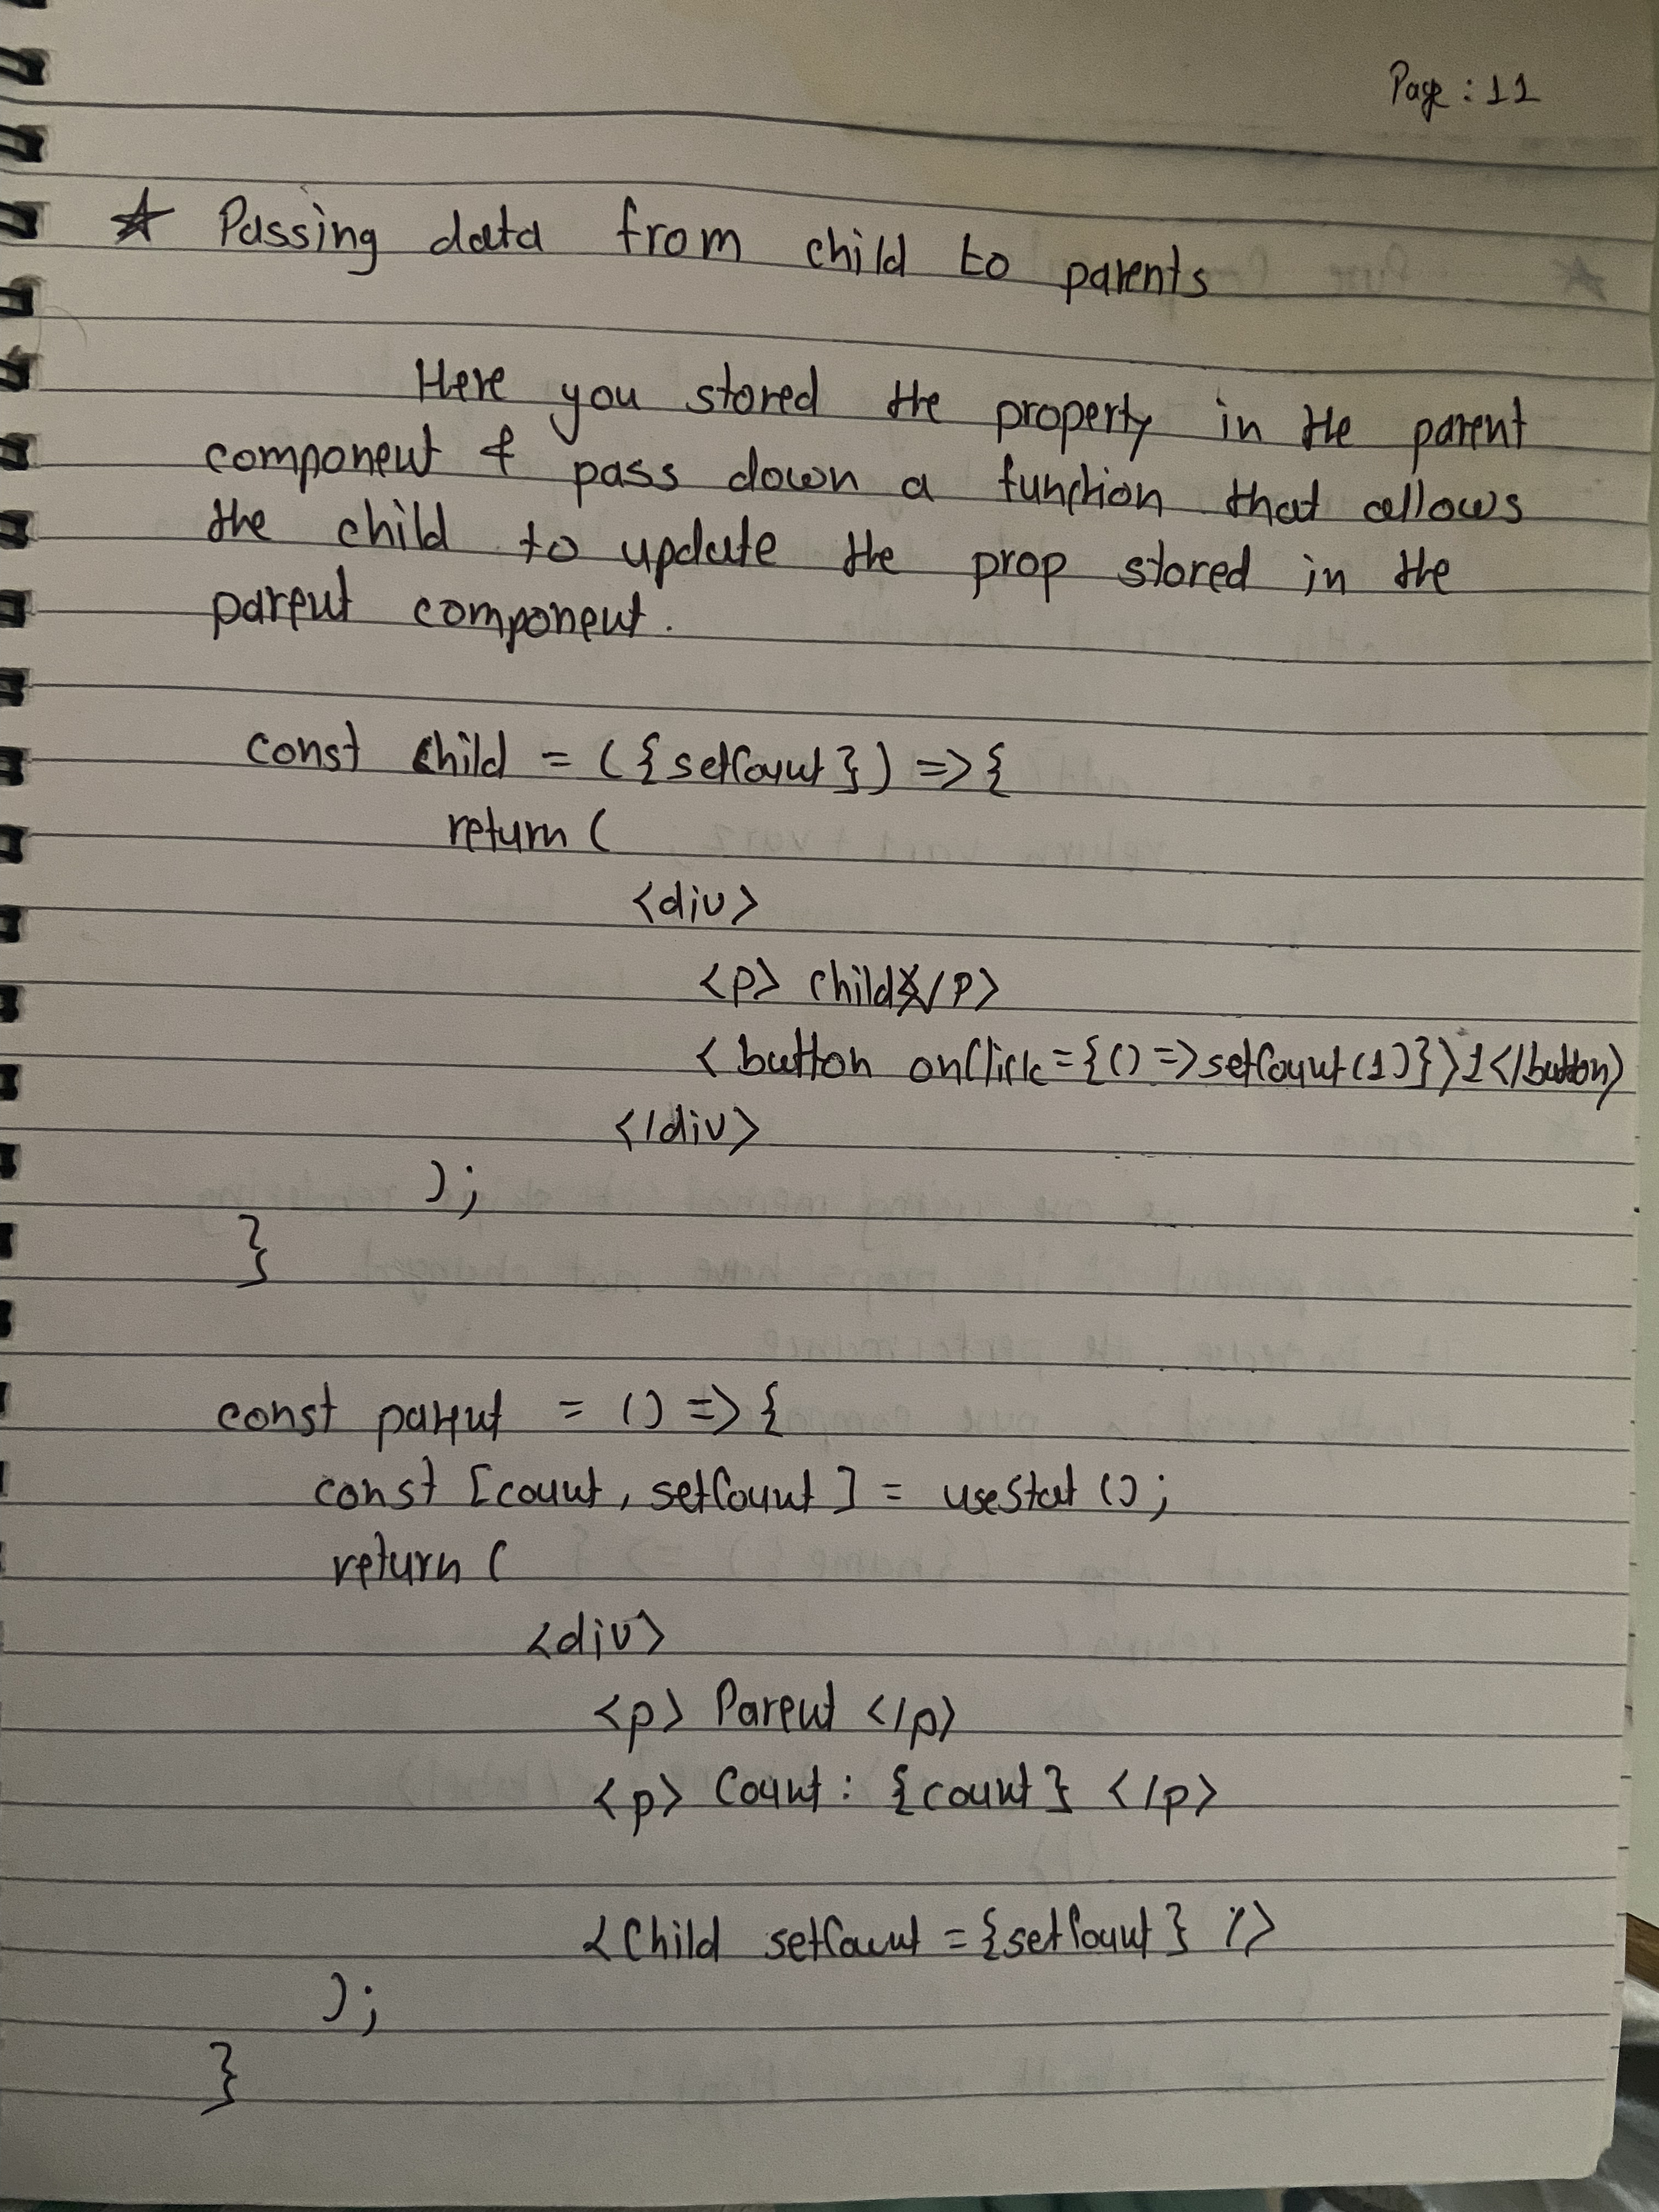 Page : 11
☆ Passing data from child to parents
Here you stored the property in the parent
component & pass down a function that allows
the child to update the prop stored in the
parent component.
const child = ({setCount}) => {
return (
<div>
<p> child</p>
<button onClick={() => setCount(1)}>1</button>
</div>
);
}
const parent = () => {
const [count, setCount] = useStat ();
return (
<div>
<p> Parent </p>
<p> Count : {count} </p>
<Child setCount = {setCount} />
);
}